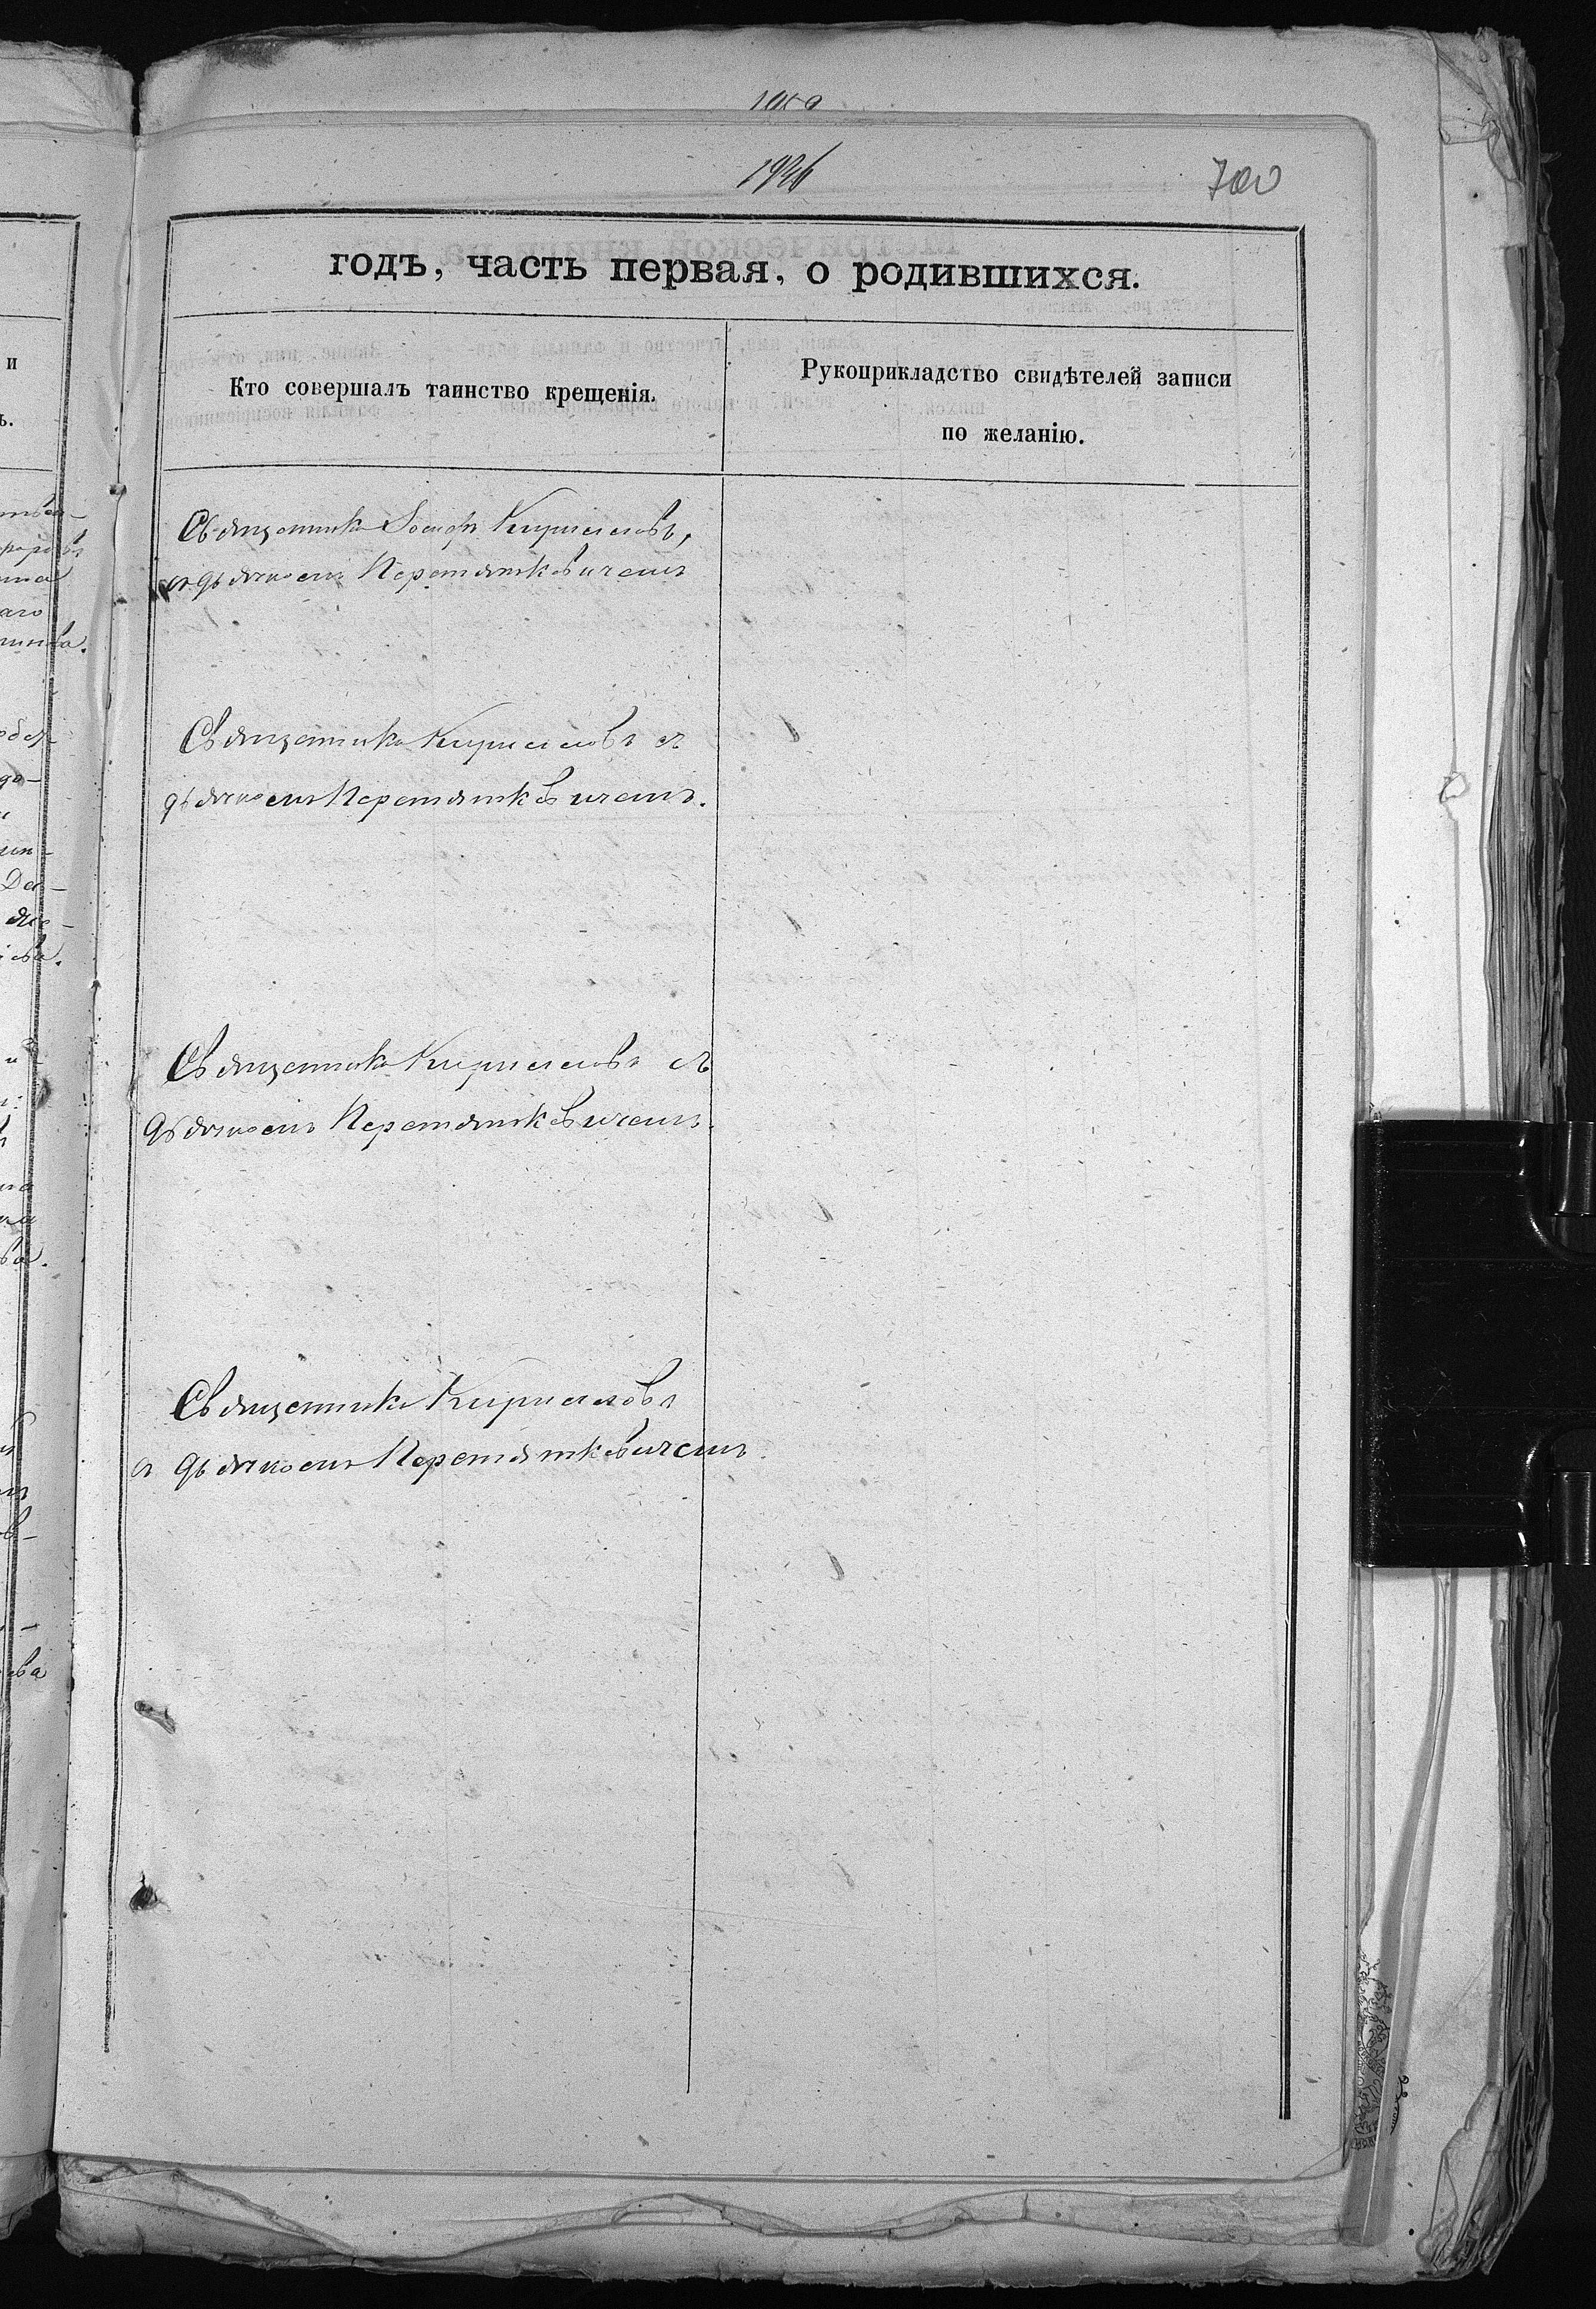 1926
700
годъ, часть первая, о родившихся.
Кто совершалъ таинство крещенія.
Рукоприкладство свидѣтелей записи
по желанію.
Священникъ Іосифъ Кирилловъ,
съ дьячкомъ Перетятковичемъ
Священникъ Кирилловъ съ
дьячкомъ Перетятковичемъ.
Священникъ Кирилловъ съ
дьячкомъ Перетятковичемъ.
Священникъ Кирилловъ
съ дьячкомъ Перетятковичемъ.